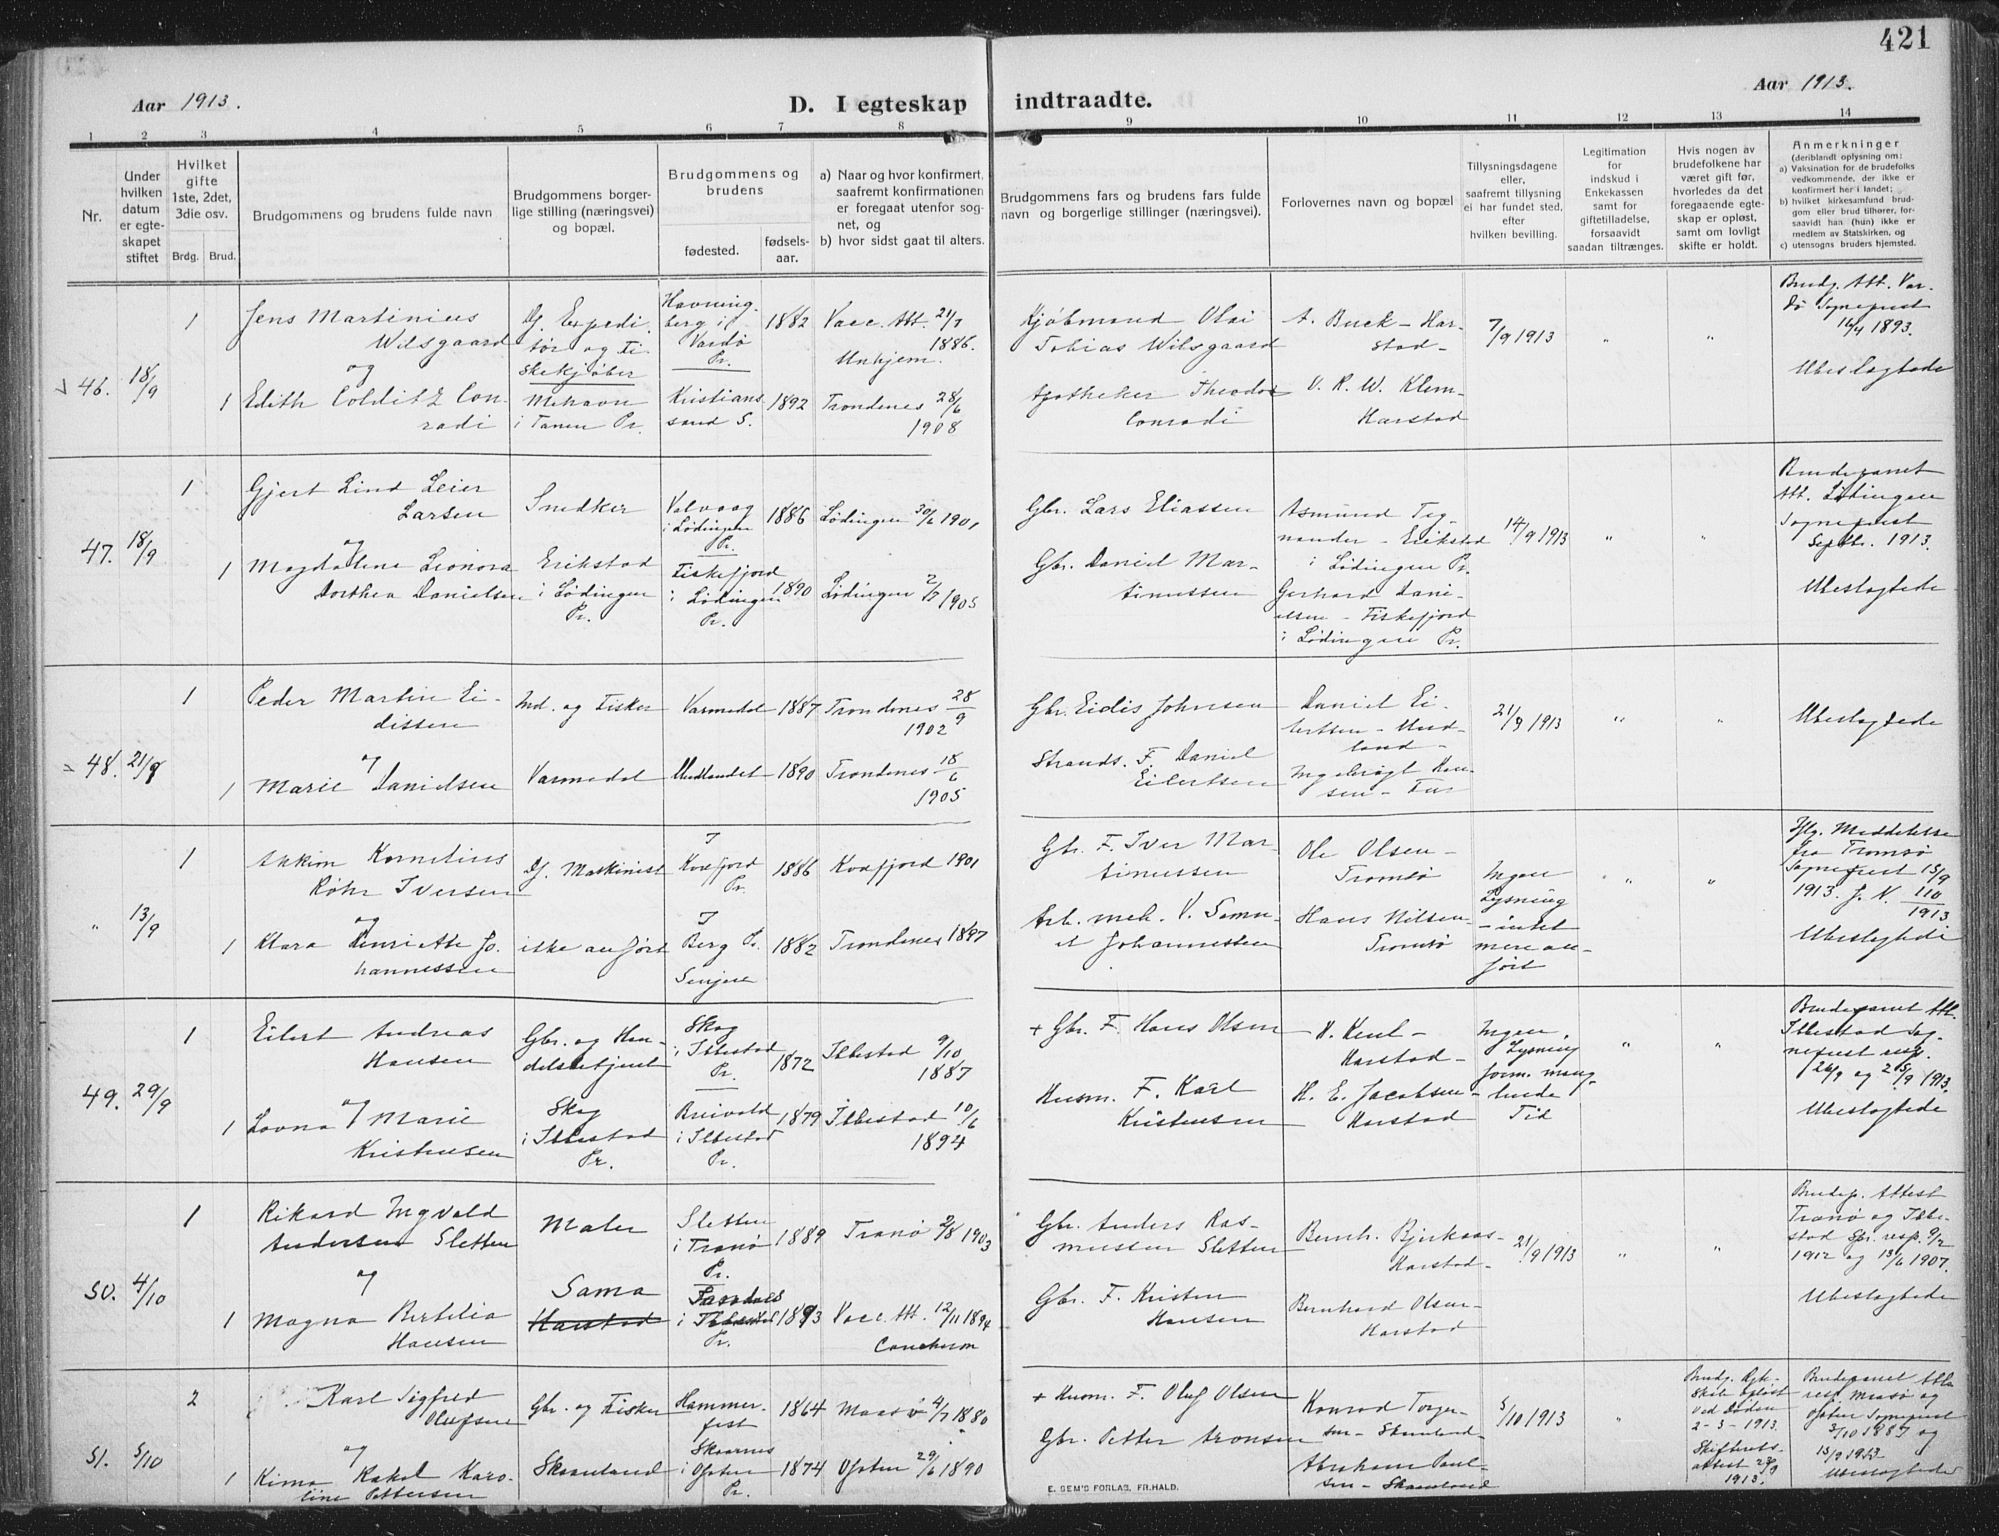 421
Aar 1913.
D. I egteskap indtraadte.
Aar 1913.
1 2 3 4 5 6 7 8 9 10 11 12 13 14
Nr.
Under
hvilken
datum
er egte-
skapet
stiftet
Hvilket
gifte
1ste, 2det,
3die osv.
Brdg. Brud.
Brudgommens og brudens fulde navn
Brudgommens borger-
lige stilling (næringsvei)
og bopæl.
Brudgommens og
brudens
fødested.
fødsels-
aar.
a) Naar og hvor konfirmert,
saafremt konfirmationen
er foregaat utenfor sog-
net, og
b) hvor sidst gaat til alters.
Brudgommens fars og brudens fars fulde
navn og borgerlige stillinger (næringsvei).
Forlovernes navn og bopæl
Tillysningsdagene
eller,
saafremt tillysning
ei har fundet sted,
efter
hvilken bevilling.
Legitimation
for
indskud i
Enkekassen
samt for
giftetilladelse,
forsaavidt
saadan tiltrænges.
Hvis nogen av
brudefolkene har
været gift før,
hvorledes da det
foregaaende egte-
skap er opløst,
samt om lovligt
skifte er holdt.
Anmerkninger
(deriblandt oplysning om:
a) Vaksination for de brudefolks
vedkommende, der ikke er
konfirmert her i landet;
b) hvilket kirkesamfund brud-
gom eller brud tilhører, for-
saavidt han (hun) ikke er
medlem av Statskirken, og
c) utensogns bruders hjemsted.
46.
18/9
1
Jens Martinius
Wilsgaard
og
1
Edith Colditz Con-
radi
Df. Expedi-
tør og Fi-
skekjøber
Mehavn
i Tanen Pr.
Havning-
berg i
Vardø
Pr.
1882
Kristians
sand S.
1892
Vacc. Att. 21/7
1886.
Trondenes 28/6
1908
Kjøbmand Olai
Tobias Wilsgaard
Apotheker Theodor
Conradi
A. Buck - Har-
stad -
V. R. W. Klem-
Harstad
7/9 1913
"
"
Brudg. Att. Var-
dø Sogneprest
16/4 1893.
Ubeslægtede
47.
18/9
1
Gjert Lind Leier
Larsen
og
1
Magdalena Leonora
Dorthea Danielsen
Snedker
Erikstad
i Lødingen
Pr.
Valvaag
i Lødingen
Pr.
1886
Fiskefjord
i Lødingen
Pr.
1890
Lødingen 30/6 1901
Lødingen 2/7 1905
Gbr. Lars Eliassen
Gbr. Daniel Mar-
tinussen
Asmund Teg-
nander - Erikstad
i Lødingen Pr.
Gerhard Dani-
elsen - Fiskefjord
i Lødingen Pr.
14/9 1913
"
"
Brudeparret
Att. Lødingen
Sogneprest
Septbr. 1913.
Ubeslægtede
48.
21/9
1
Peder Martin Ei-
dissen
og
1
Marie Danielsen
Ind. og Fisker
Varmedal
Varmedal
1887
Undlandet
1890
Trondenes 28/9
1902
Trondenes 18/6
1905
Gbr. Eidis Johnsen
Strands. F. Daniel
Eilertsen
Daniel Ei-
lertsen - Und-
land -
Ingebrigt Han-
sen -
21/9 1913
"
"
Ubeslægtede
"
13/9
1
Ankim Kornelius
Røhr Iversen
og
1
Klara Henriette Jo-
hannessen
Df. Maskinist
ikke anført
I
Kvæfjord
Pr.
1886
I
Berg Pr.
Senjen
1882
Kvæfjord 1901
Trondenes 1897
Gbr. F. Iver Mar-
tinussen
Arb. meh. V. Samu-
el Johannessen
Ole Olsen -
Tromsø
Hans Nilsen -
Tromsø
Ingen
Lysning
- intet
mere an-
ført
"
"
Iflg. Meddelelse
fra Tromsø
Sogneprest 15/9
1913. J. N. 110/1913
Ubeslægtede
49.
29/9
1
Eilert Andreas
Hansen
og
1
Lovna Marie
Kristensen
Gbr. og Han-
delsbetjent
Skog
i Ibbestad
Pr.
Skog
i Ibbestad
Pr.
1872
Breivold
i Ibbestad
Pr.
1879
Ibbestad 9/10
1887
Ibbestad 10/6
1894
+ Gbr. F. Hans Olsen
Husm. F. Karl
Kristensen
Harstad -
H. E. Jacobsen -
Harstad
Ingen
Lysning
form. mang-
lende
Tid
"
"
Brudeparret Att.
Ibbestad Sog-
neprest resp.
26/9 og 25/9 1913.
Ubeslægtede
50.
4/10
1
Rikard Ingvald
Andersen Sletten
og
1
Magna Bertilia
Hansen
Maler
Sama
Harstad
Sletten
i Tranø
Pr.
1889
i Ibbestad
Pr.
1893
Tranø 2/8 1903
Vacc. Att. 12/11 1894
Gbr. Anders Ras-
mussen Sletten
Gbr. F. Kristen
Hansen
Bernh. Bjerkaas -
Harstad -
Bernhard Olsen -
Harstad
21/9 1913
"
"
Brudep. Attest
Tranø og Ibbe-
stad Spr. resp. 9/2
1912 og 13/6 1907.
Ubeslægtede
51.
5/10
2
Karl Sigfred
Olufsen
og
1
Kima Rakel Karo-
line Pettersen
Gbr. og Fisker
Skaanland
Hammer-
fest
1864
Skaanes
i Ofoten
Pr.
1874
Maasø 4/7 1880
Ofoten 29/6 1890
+ Husm. F. Oluf Olsen
Gbr. Petter Aronsen
Konrad Torger-
sen - Skaanland -
Abraham Paul-
sen - Skaanland
5/10 1913
"
Brudg. Egt-
skab opløst
ved Døden
2-3-1913.
Skifterets-
attest 23/9
1913.
Brudeparret Atta
resp. Maasø og
Ofoten Sogneprest
3/10 1887 og
15/9 1913.
Ubeslægtede
E. SEM'S FORLAG, FR.HALD.